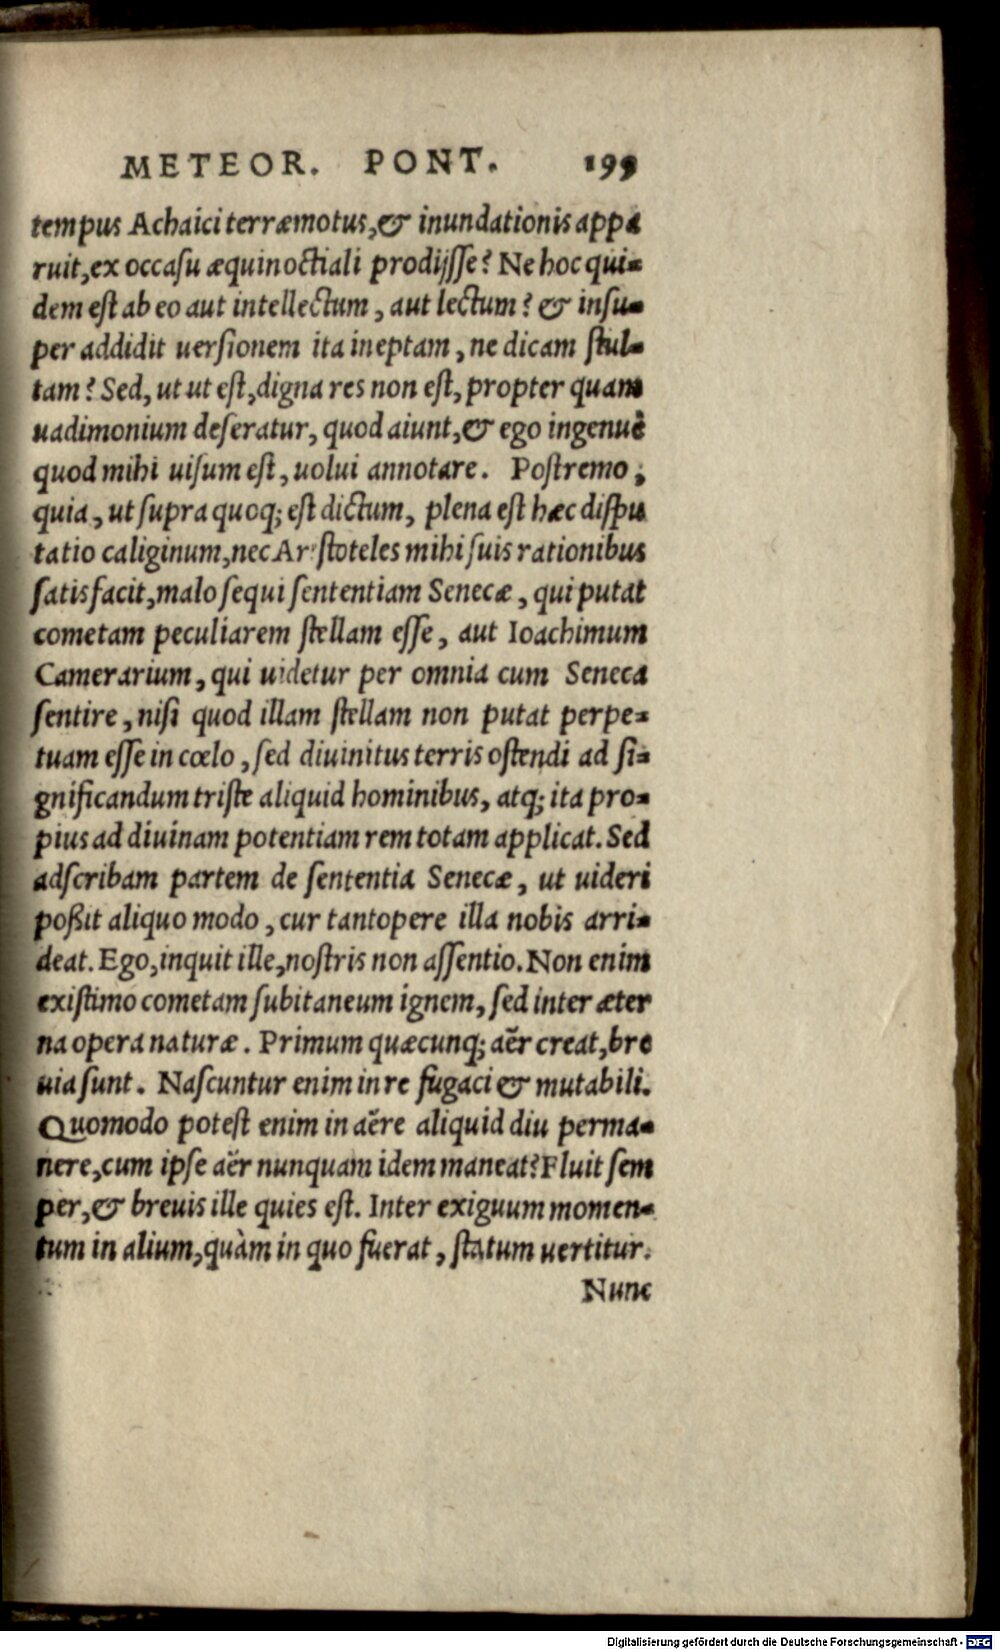 METEOR. PONT. 199
tempus Achaici terræmotus, & inundationis appa
ruit, ex occasu æquinoctiali prodijsse? Ne hoc qui-
dem est ab eo aut intellectum, aut lectum? & insu-
per addidit uersionem ita ineptam, ne dicam stul-
tam? Sed, ut ut est, digna res non est, propter quam
uadimonium deseratur, quod aiunt, & ego ingenuè
quod mihi uisum est, uolui annotare. Postremo,
quia, ut supra quoq; est dictum, plena est hæc dispu
tatio caliginum, nec Aristoteles mihi suis rationibus
satisfacit, malo sequi sententiam Senecæ, qui putat
cometam peculiarem stellam esse, aut Ioachimum
Camerarium, qui uidetur per omnia cum Seneca
sentire, nisi quod illam stellam non putat perpe-
tuam esse in cœlo, sed diuinitus terris ostendi ad si-
gnificandum triste aliquid hominibus, atq; ita pro-
pius ad diuinam potentiam rem totam applicat. Sed
adscribam partem de sententia Senecæ, ut uideri
poßit aliquo modo, cur tantopere illa nobis arri-
deat. Ego, inquit ille, nostris non assentio. Non enim
existimo cometam subitaneum ignem, sed inter æter
na opera naturæ. Primum quæcunq; aër creat, bre
uia sunt. Nascuntur enim in re fugaci & mutabili.
Quomodo potest enim in aëre aliquid diu perma-
nere, cum ipse aër nunquam idem maneat? Fluit sem
per, & breuis ille quies est. Inter exiguum momen-
tum in alium, quàm in quo fuerat, statum uertitur.
Nunc
Digitalisierung gefördert durch die Deutsche Forschungsgemeinschaft - DFG